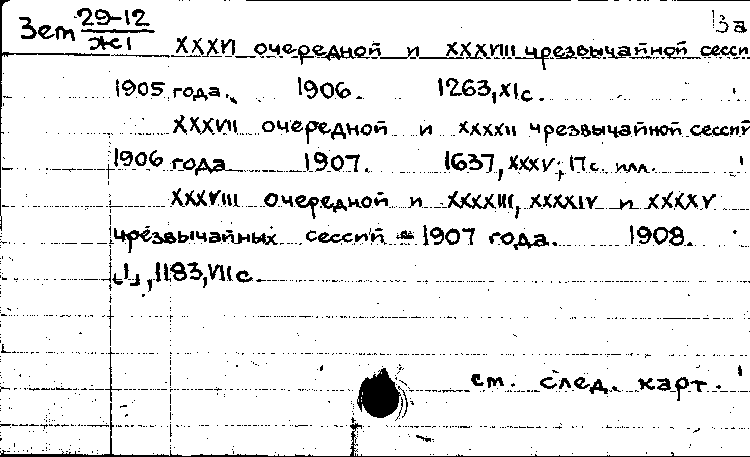 Зет 29-12 13а
ЖI
XXXVI очередной и XXXVIII чрезвычайной сесси
1905 года. 1906. 1263, XIс.
XXXVII очередной и XXXXII чрезвычайной сессий
1906 года 1907. 1637, XXXV, 17с. илл.
XXXVIII очередной и XXXXIII, XXXXIV и XXXXV
чрезвычайных сессий - 1907 года. 1908.
1183, VIIс.
см. след. карт.